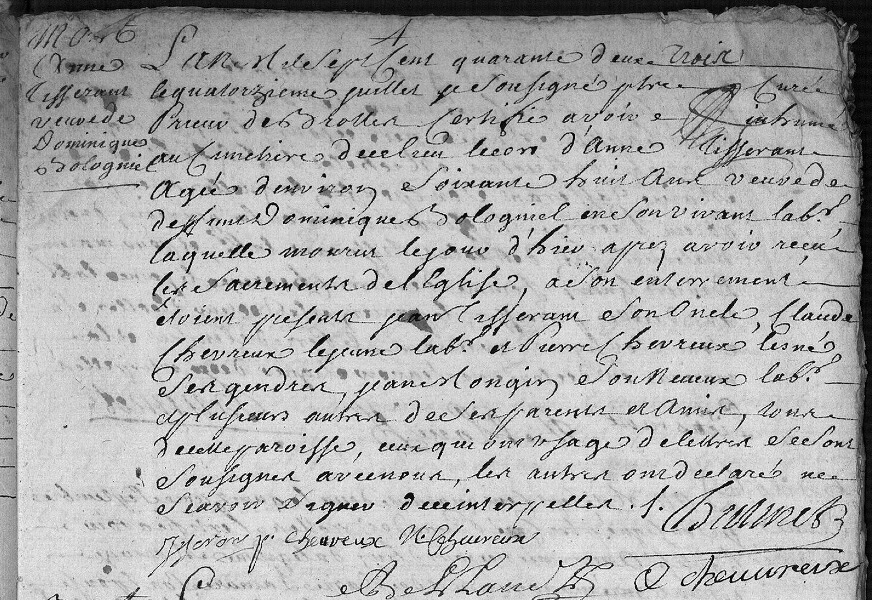 Mort
d'Anne
Tisserant
veuve de
Dominique
Bologniel
L'an Mil sept Cent quarante deux trois
le quatorzieme juillet je Soussigné ptre Curé
Prieur de Brolles Certifie avoir Inhumé
au Cimetiere de ce lieu le cors d'Anne Tisserant
Agée d'environ Soixante huit Ans veuve de
deffunt Dominique Bologniel en son vivant labr.
laquelle mourut le jour d'hier apres avoir receu
les Sacrements de l'Eglise, a Son enterrement
étoient presents jean Tisserant Son Oncle, Claude
Chevreux le jeune labr. et Pierre Chevreux l'esné
Ses gendres, jean Mongin Son Neveux labr.
et plusieurs autres de Ses parents et Amis, tous
de cette paroisse, ceux qui ont usage de lettres Se Sont
Soussignes avec nous, les autres ont declaré ne
Scavoir Signer de ce interpelles ./.
p. cheureux N. Cheureux
C cheuureux